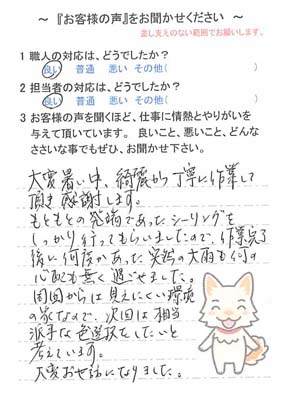 ～ 『お客様の声』をお聞かせください ～
差し支えのない範囲でお願いします。
1 職人の対応は、どうでしたか？
良い 普通 悪い その他( )
2 担当者の対応は、どうでしたか？
良い 普通 悪い その他( )
3 お客様の声を聞くほど、仕事に情熱とやりがいを
与えて頂いています。 良いこと、悪いこと、どんな
ささいな事でもぜひ、お聞かせ下さい。
大変暑い中、綺麗かつ丁寧に作業して
頂き感謝します。
もともとの発端であったシーリングを
しっかり行ってもらいましたので、作業完了
後に何度かあった突然の大雨も何の
心配も無く過ごせました。
周囲からは見えにくい環境
の家なので、次回は相当
派手な色選択をしたいと
考えています。
大変お世話になりました。